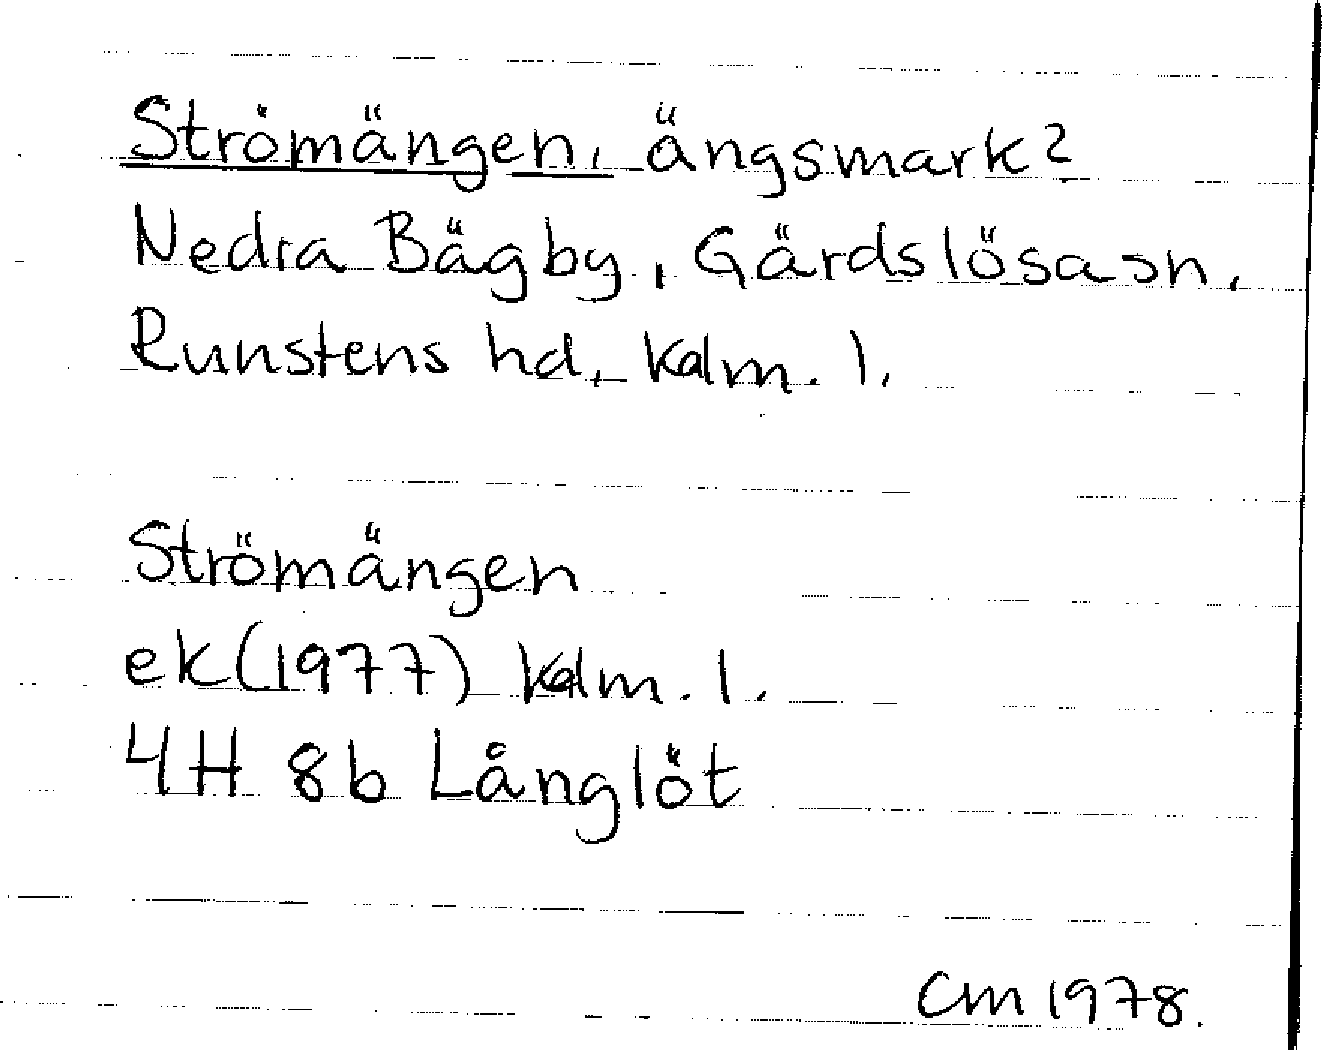 Strömängen, ängsmark?
Nedra Bägby, Gärdslösa sn,
Runstens hd, Kalm. l.
Strömängen
ek (1977) Kalm. l.
4H 8b Långlöt
CM 1978.